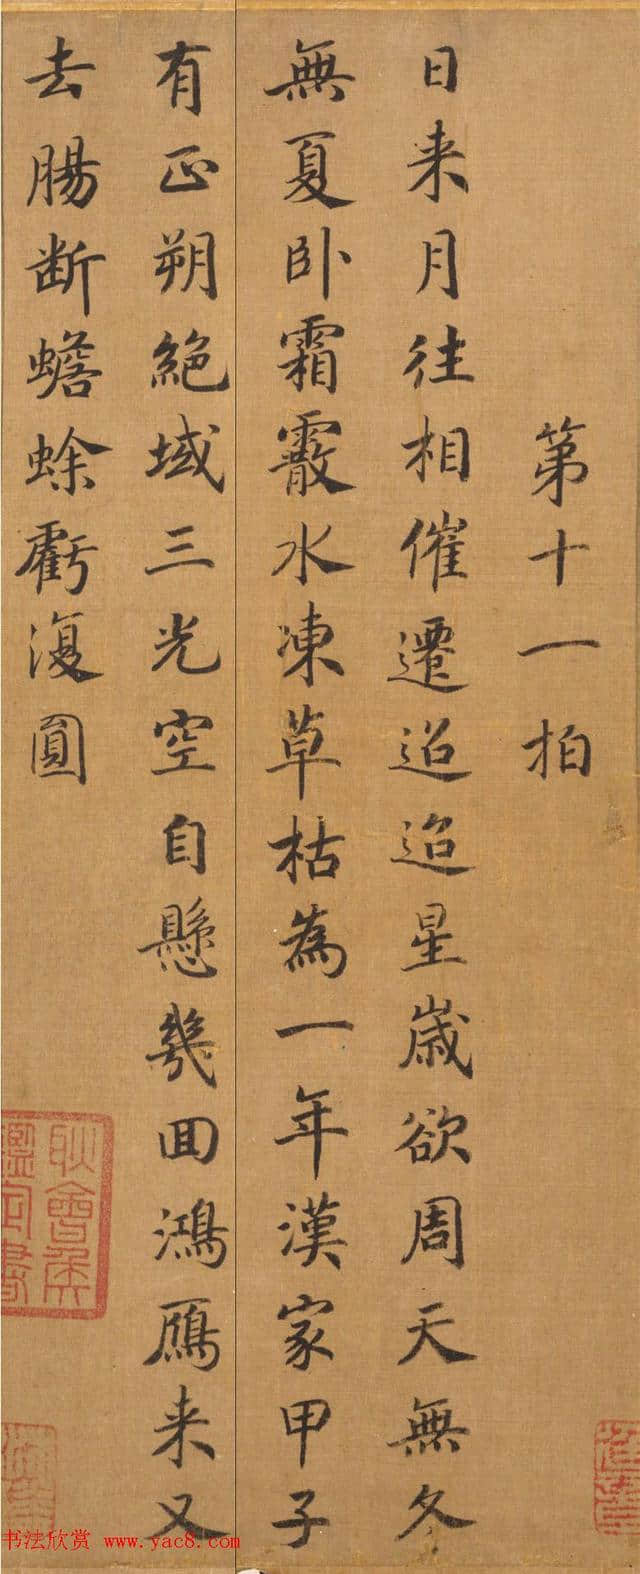 第十一拍
日来月往相催遷迢迢星歳欲周天無冬
無夏卧霜霰水凍草枯為一年漢家甲子
有正朔絶域三光空自懸幾囬鴻鴈来又
去腸断蟾蜍虧復圓
耿會侯
书法欣赏 www.yac8.com